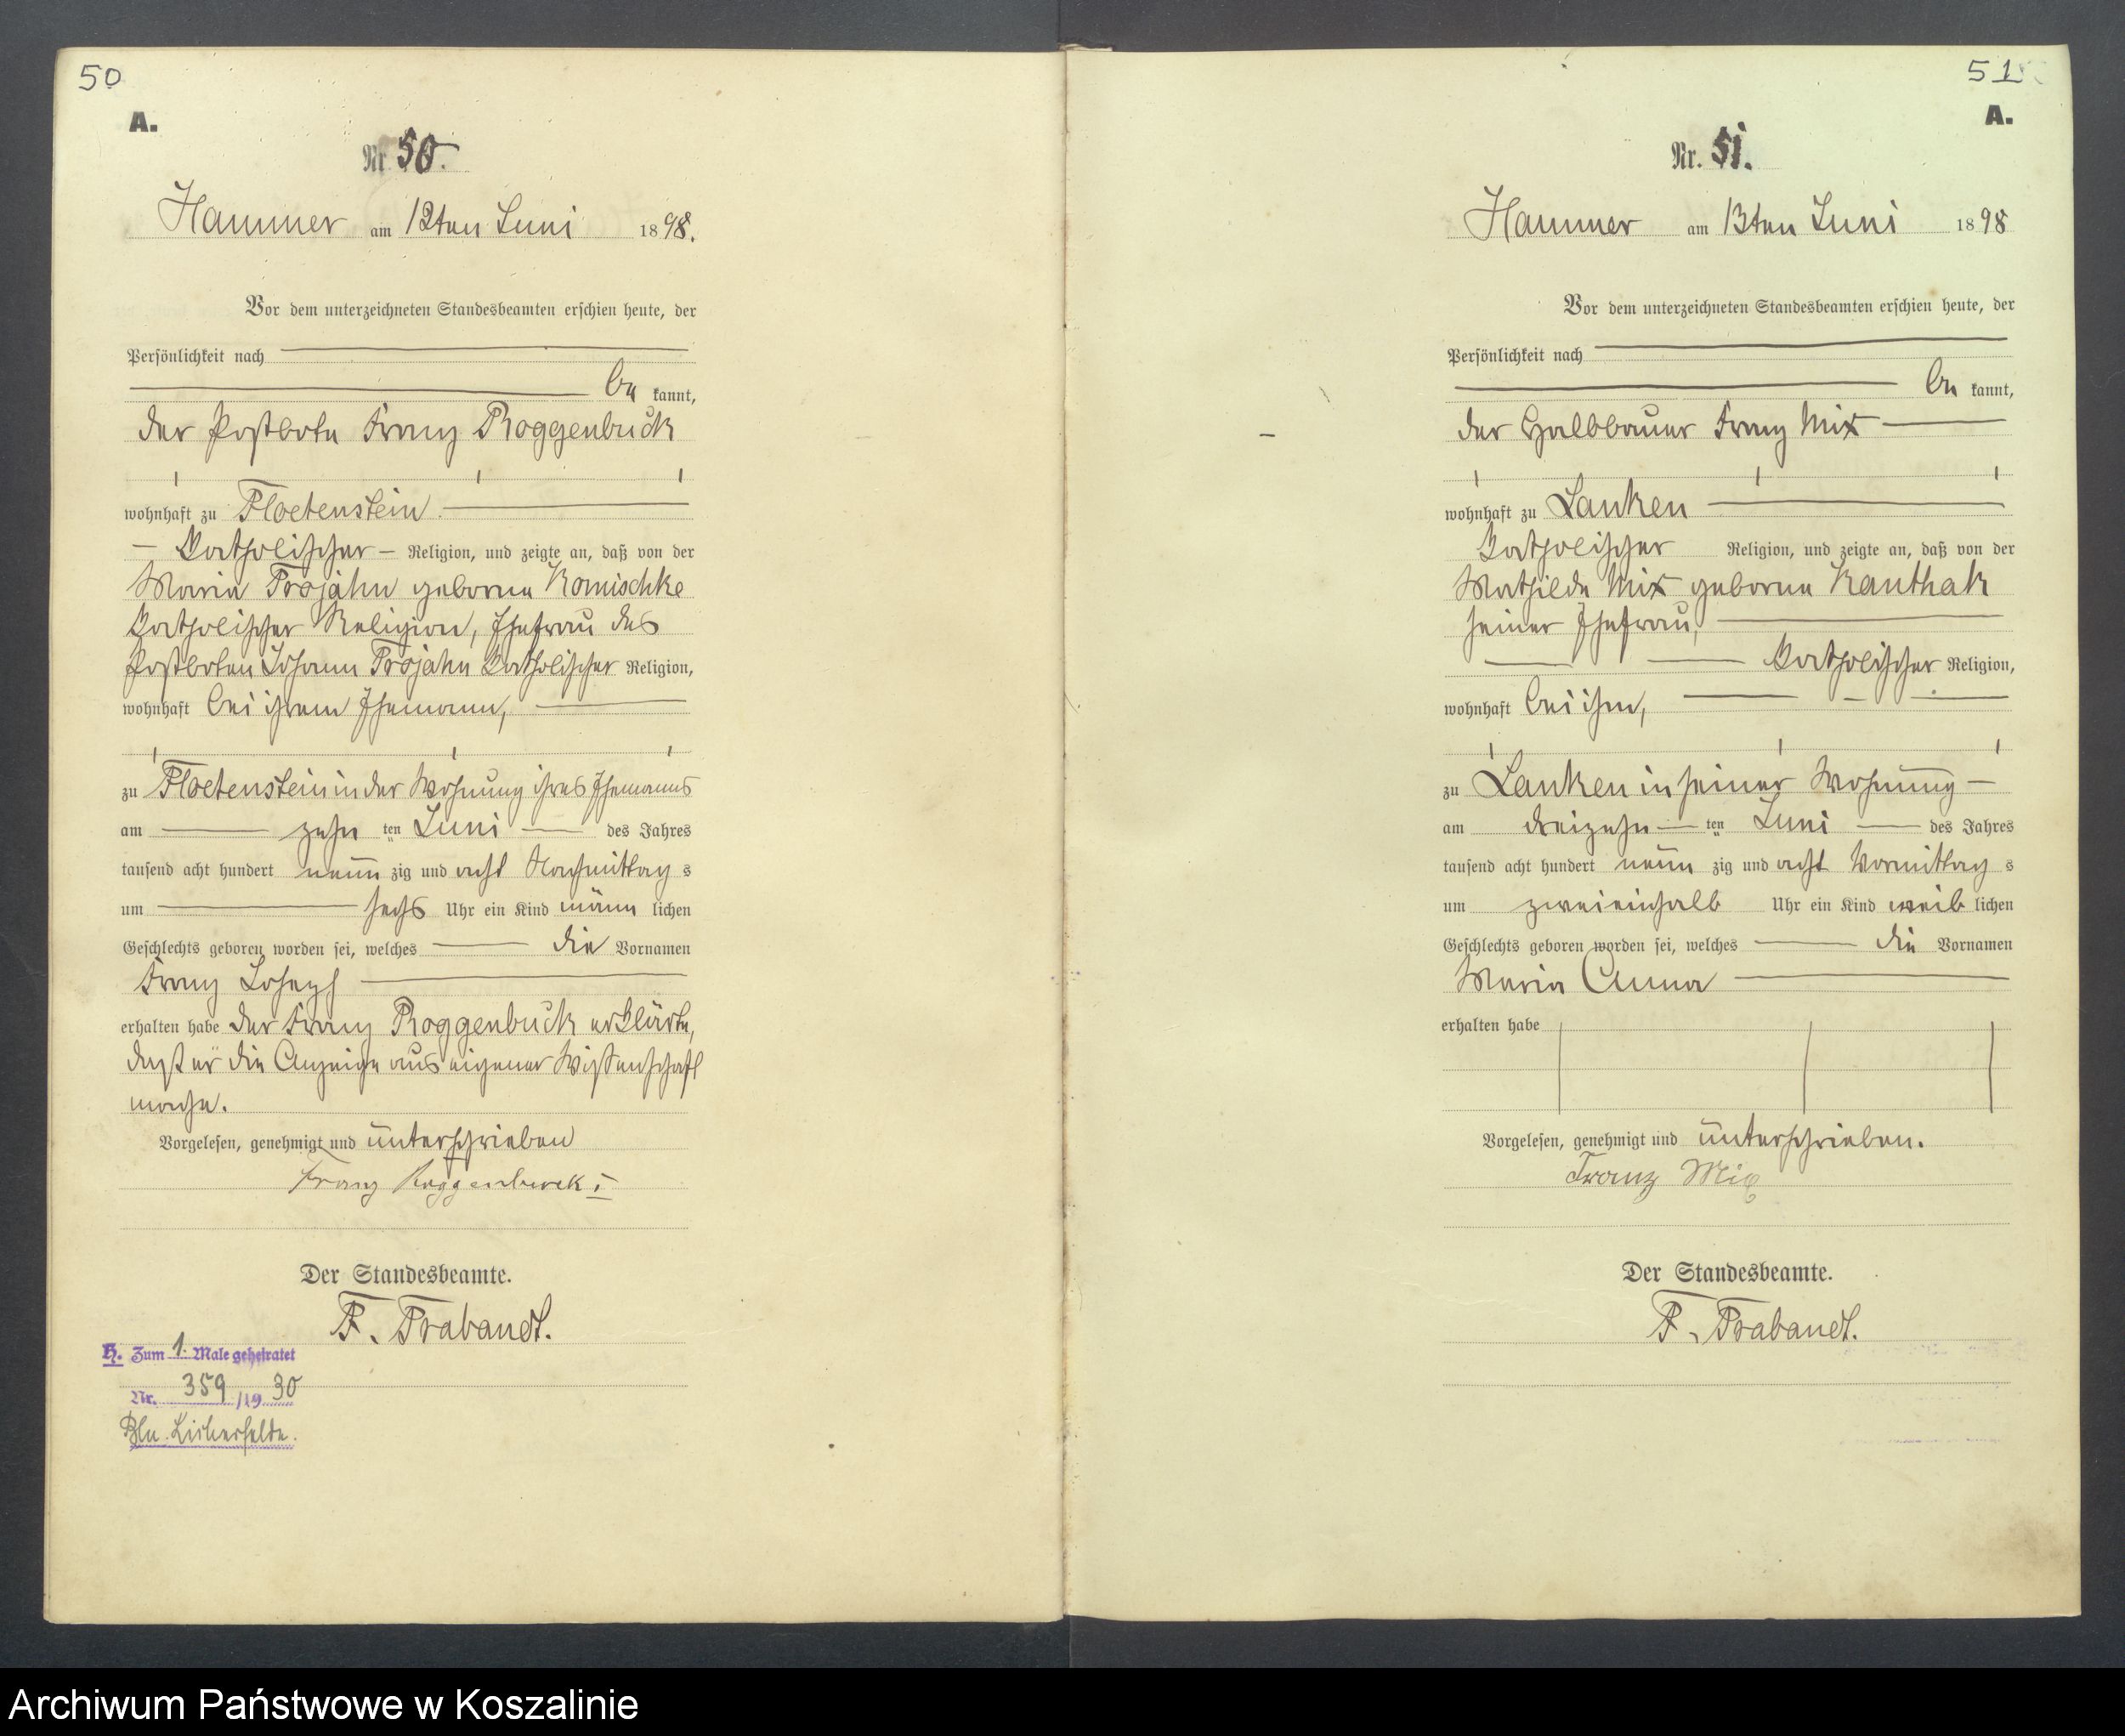 50
A.
Nr. 50.
Hammer am 12ten Juni 1898.
Vor dem unterzeichneten Standesbeamten erschien heute, der
Persönlichkeit nach
be kannt,
der Postbote Franz Roggenbuck
wohnhaft zu Floetenstein
katholischer Religion, und zeigte an, daß von der
Maria Trojahn geborene Komischke
katholischer Religion, Ehefrau des
Postboten Johann Trojahn katholischer Religion,
wohnhaft bei ihrem Ehemann,
zu Floetenstein in der Wohnung ihres Ehemanns
am zehn ten Juni des Jahres
tausend acht hundert neun zig und acht Nachmittag s
um sechs Uhr ein Kind männ lichen
Geschlechts geboren worden sei, welches die Vornamen
Franz Joseph
erhalten habe der Franz Roggenbuck erklärte,
daß er die Anzeige aus eigener Wissenschaft
mache.
Vorgelesen, genehmigt und unterschrieben
Franz Roggenbuck I
Der Standesbeamte.
F. Trabandt.
H. Zum 1. Male geheiratet
Nr. 359/1930
Bln. Lichterfelde.
51
A.
Nr. 51.
Hammer am 13ten Juni 1898
Vor dem unterzeichneten Standesbeamten erschien heute, der
Persönlichkeit nach
be kannt,
der Halbbauer Franz Mix
wohnhaft zu Lanken
katholischer Religion, und zeigte an, daß von der
Mathilde Mix geborene Kanthak
seiner Ehefrau,
katholischer Religion,
wohnhaft bei ihm,
zu Lanken in seiner Wohnung
am dreizehn ten Juni des Jahres
tausend acht hundert neun zig und acht Vormittag s
um zweieinhalb Uhr ein Kind weib lichen
Geschlechts geboren worden sei, welches die Vornamen
Maria Anna
erhalten habe
Vorgelesen, genehmigt und unterschrieben.
Franz Mix
Der Standesbeamte.
F. Trabandt.
Archiwum Państwowe w Koszalinie